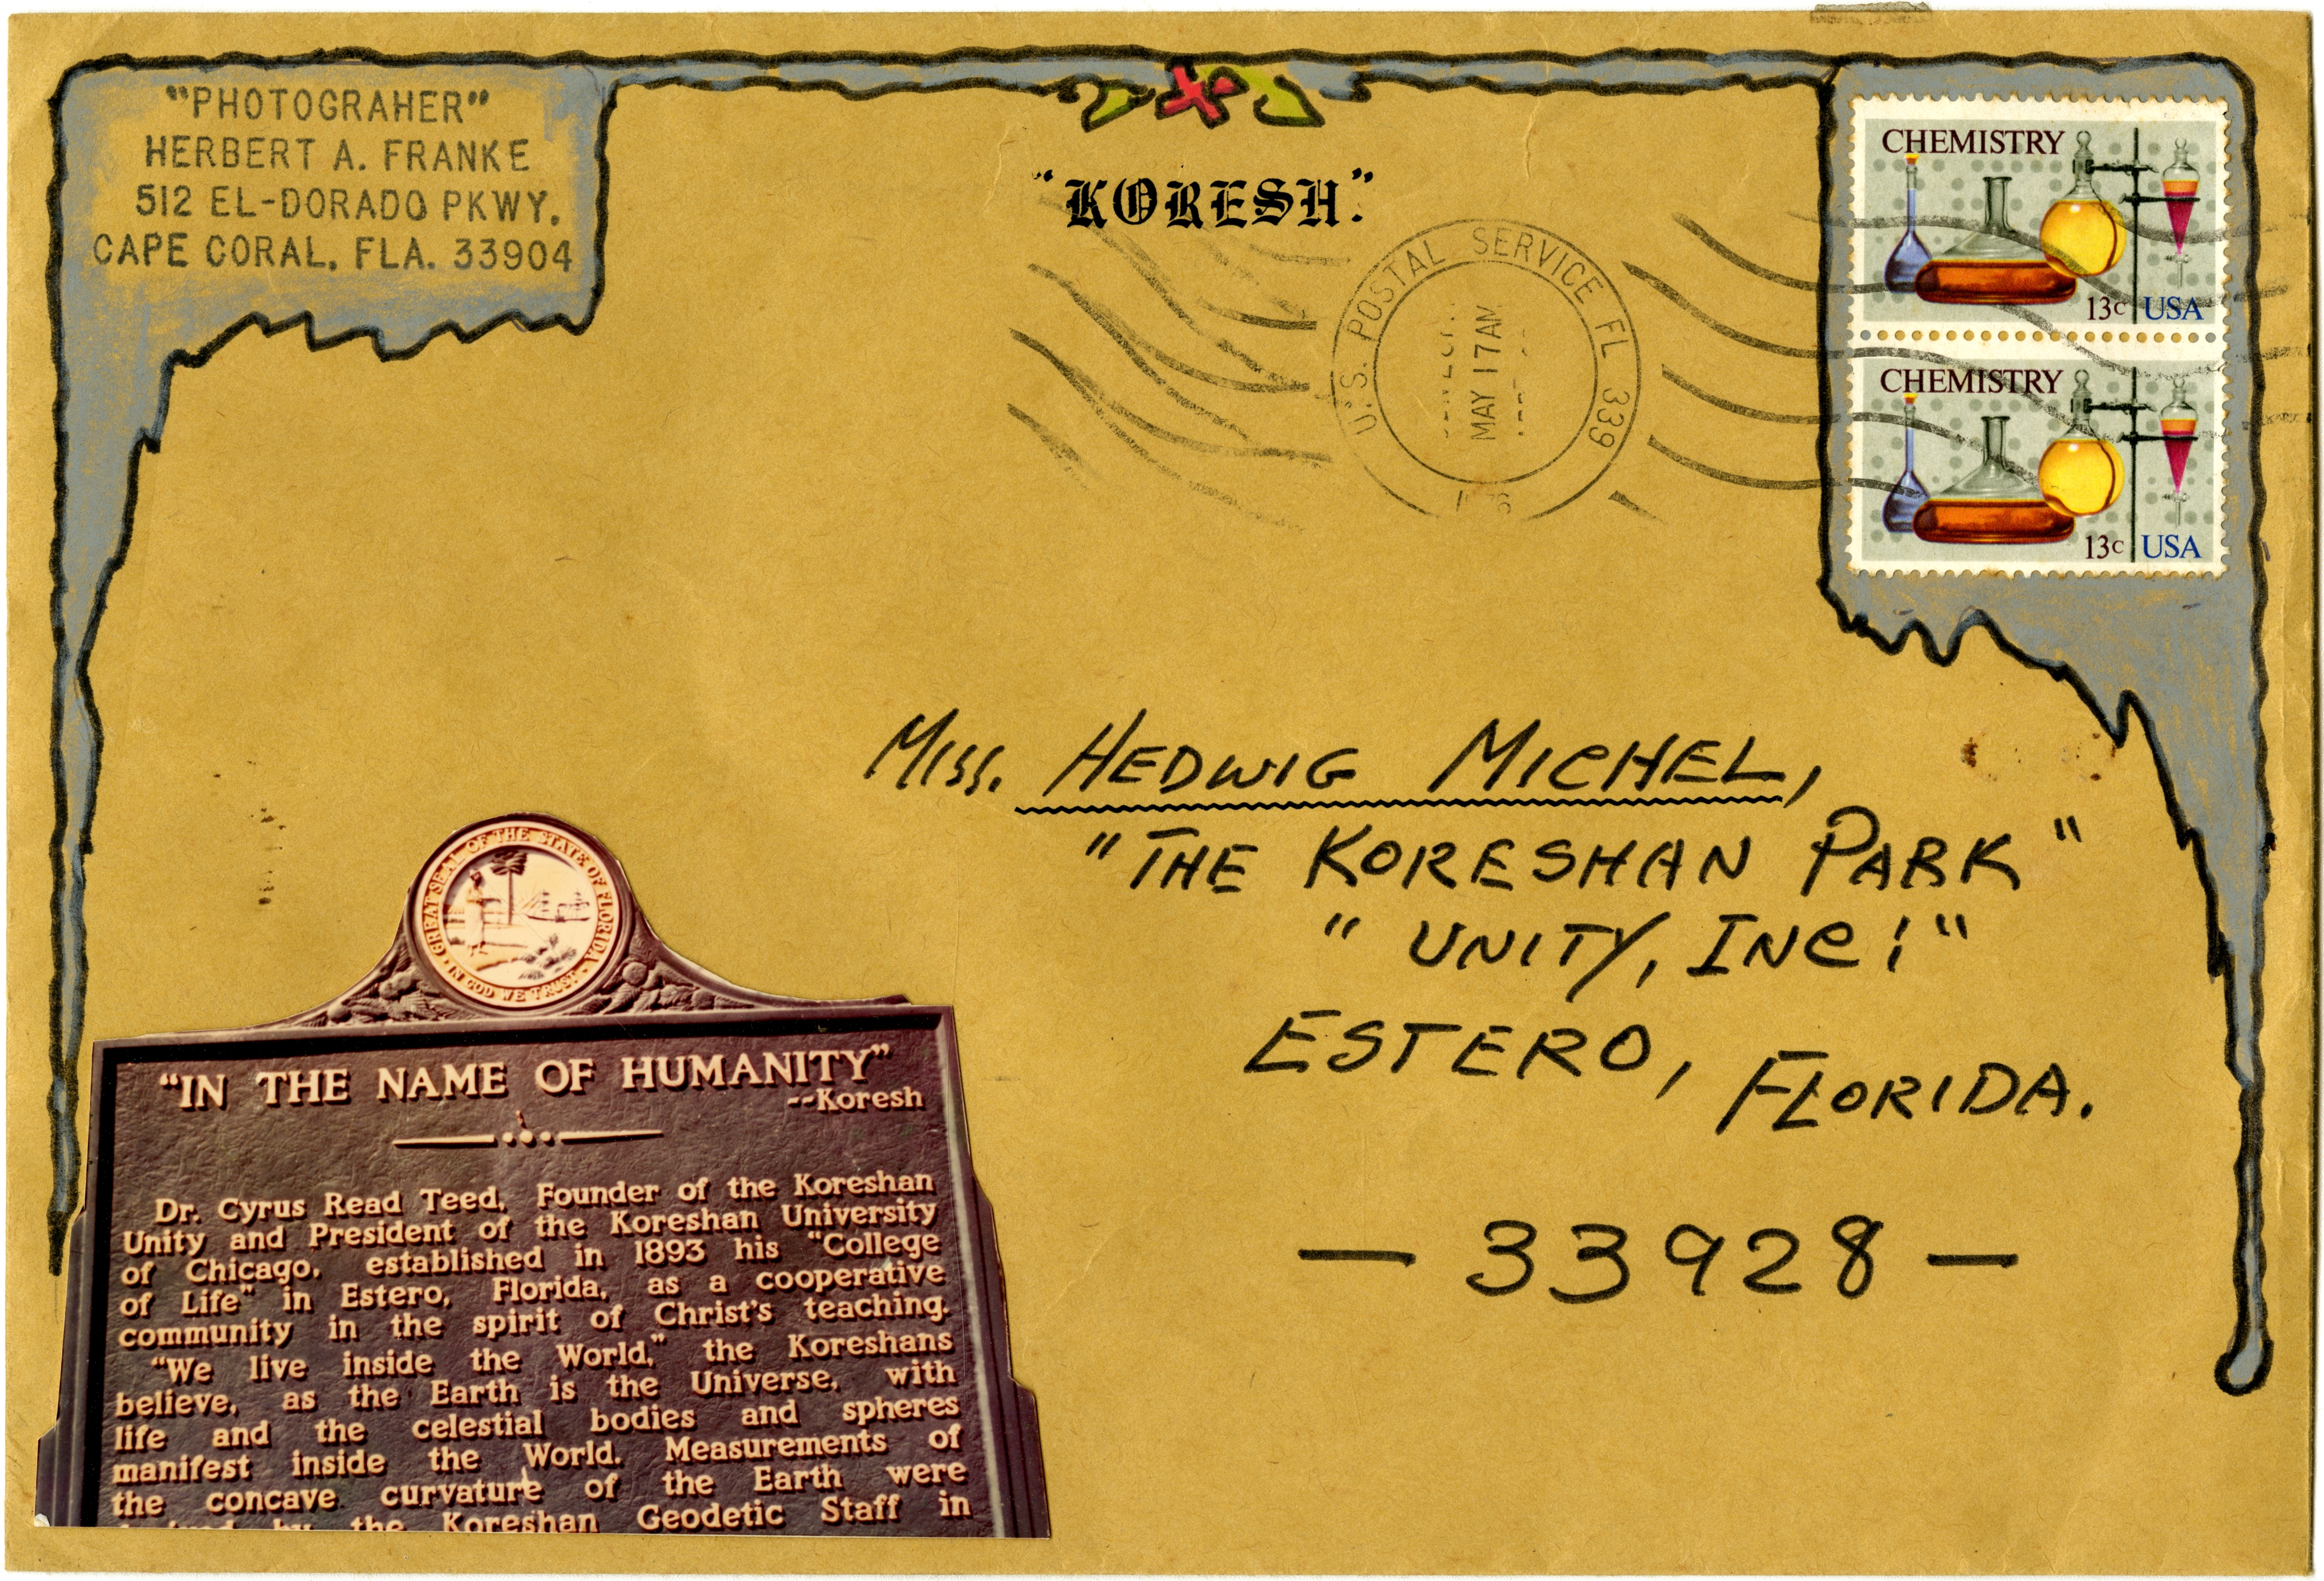 "PHOTOGRAHER"
HERBERT A. FRANKE
512 EL-DORADO PKWY.
CAPE CORAL, FLA. 33904
"KORESH"
U.S. POSTAL SERVICE FL 339
MAY 17 AM
CHEMISTRY
13c USA
CHEMISTRY
13c USA
Miss. HEDWIG MICHEL,
"THE KORESHAN PARK"
"UNITY, INC!"
ESTERO, FLORIDA.
— 33928 —
GREAT SEAL OF THE STATE OF FLORIDA
IN GOD WE TRUST
"IN THE NAME OF HUMANITY"
--Koresh
Dr. Cyrus Read Teed, Founder of the Koreshan
Unity and President of the Koreshan University
of Chicago, established in 1893 his "College
of Life" in Estero, Florida, as a cooperative
community in the spirit of Christ's teaching.
"We live inside the World," the Koreshans
believe, as the Earth is the Universe, with
life and the celestial bodies and spheres
manifest inside the World. Measurements of
the concave curvature of the Earth were
by the Koreshan Geodetic Staff in